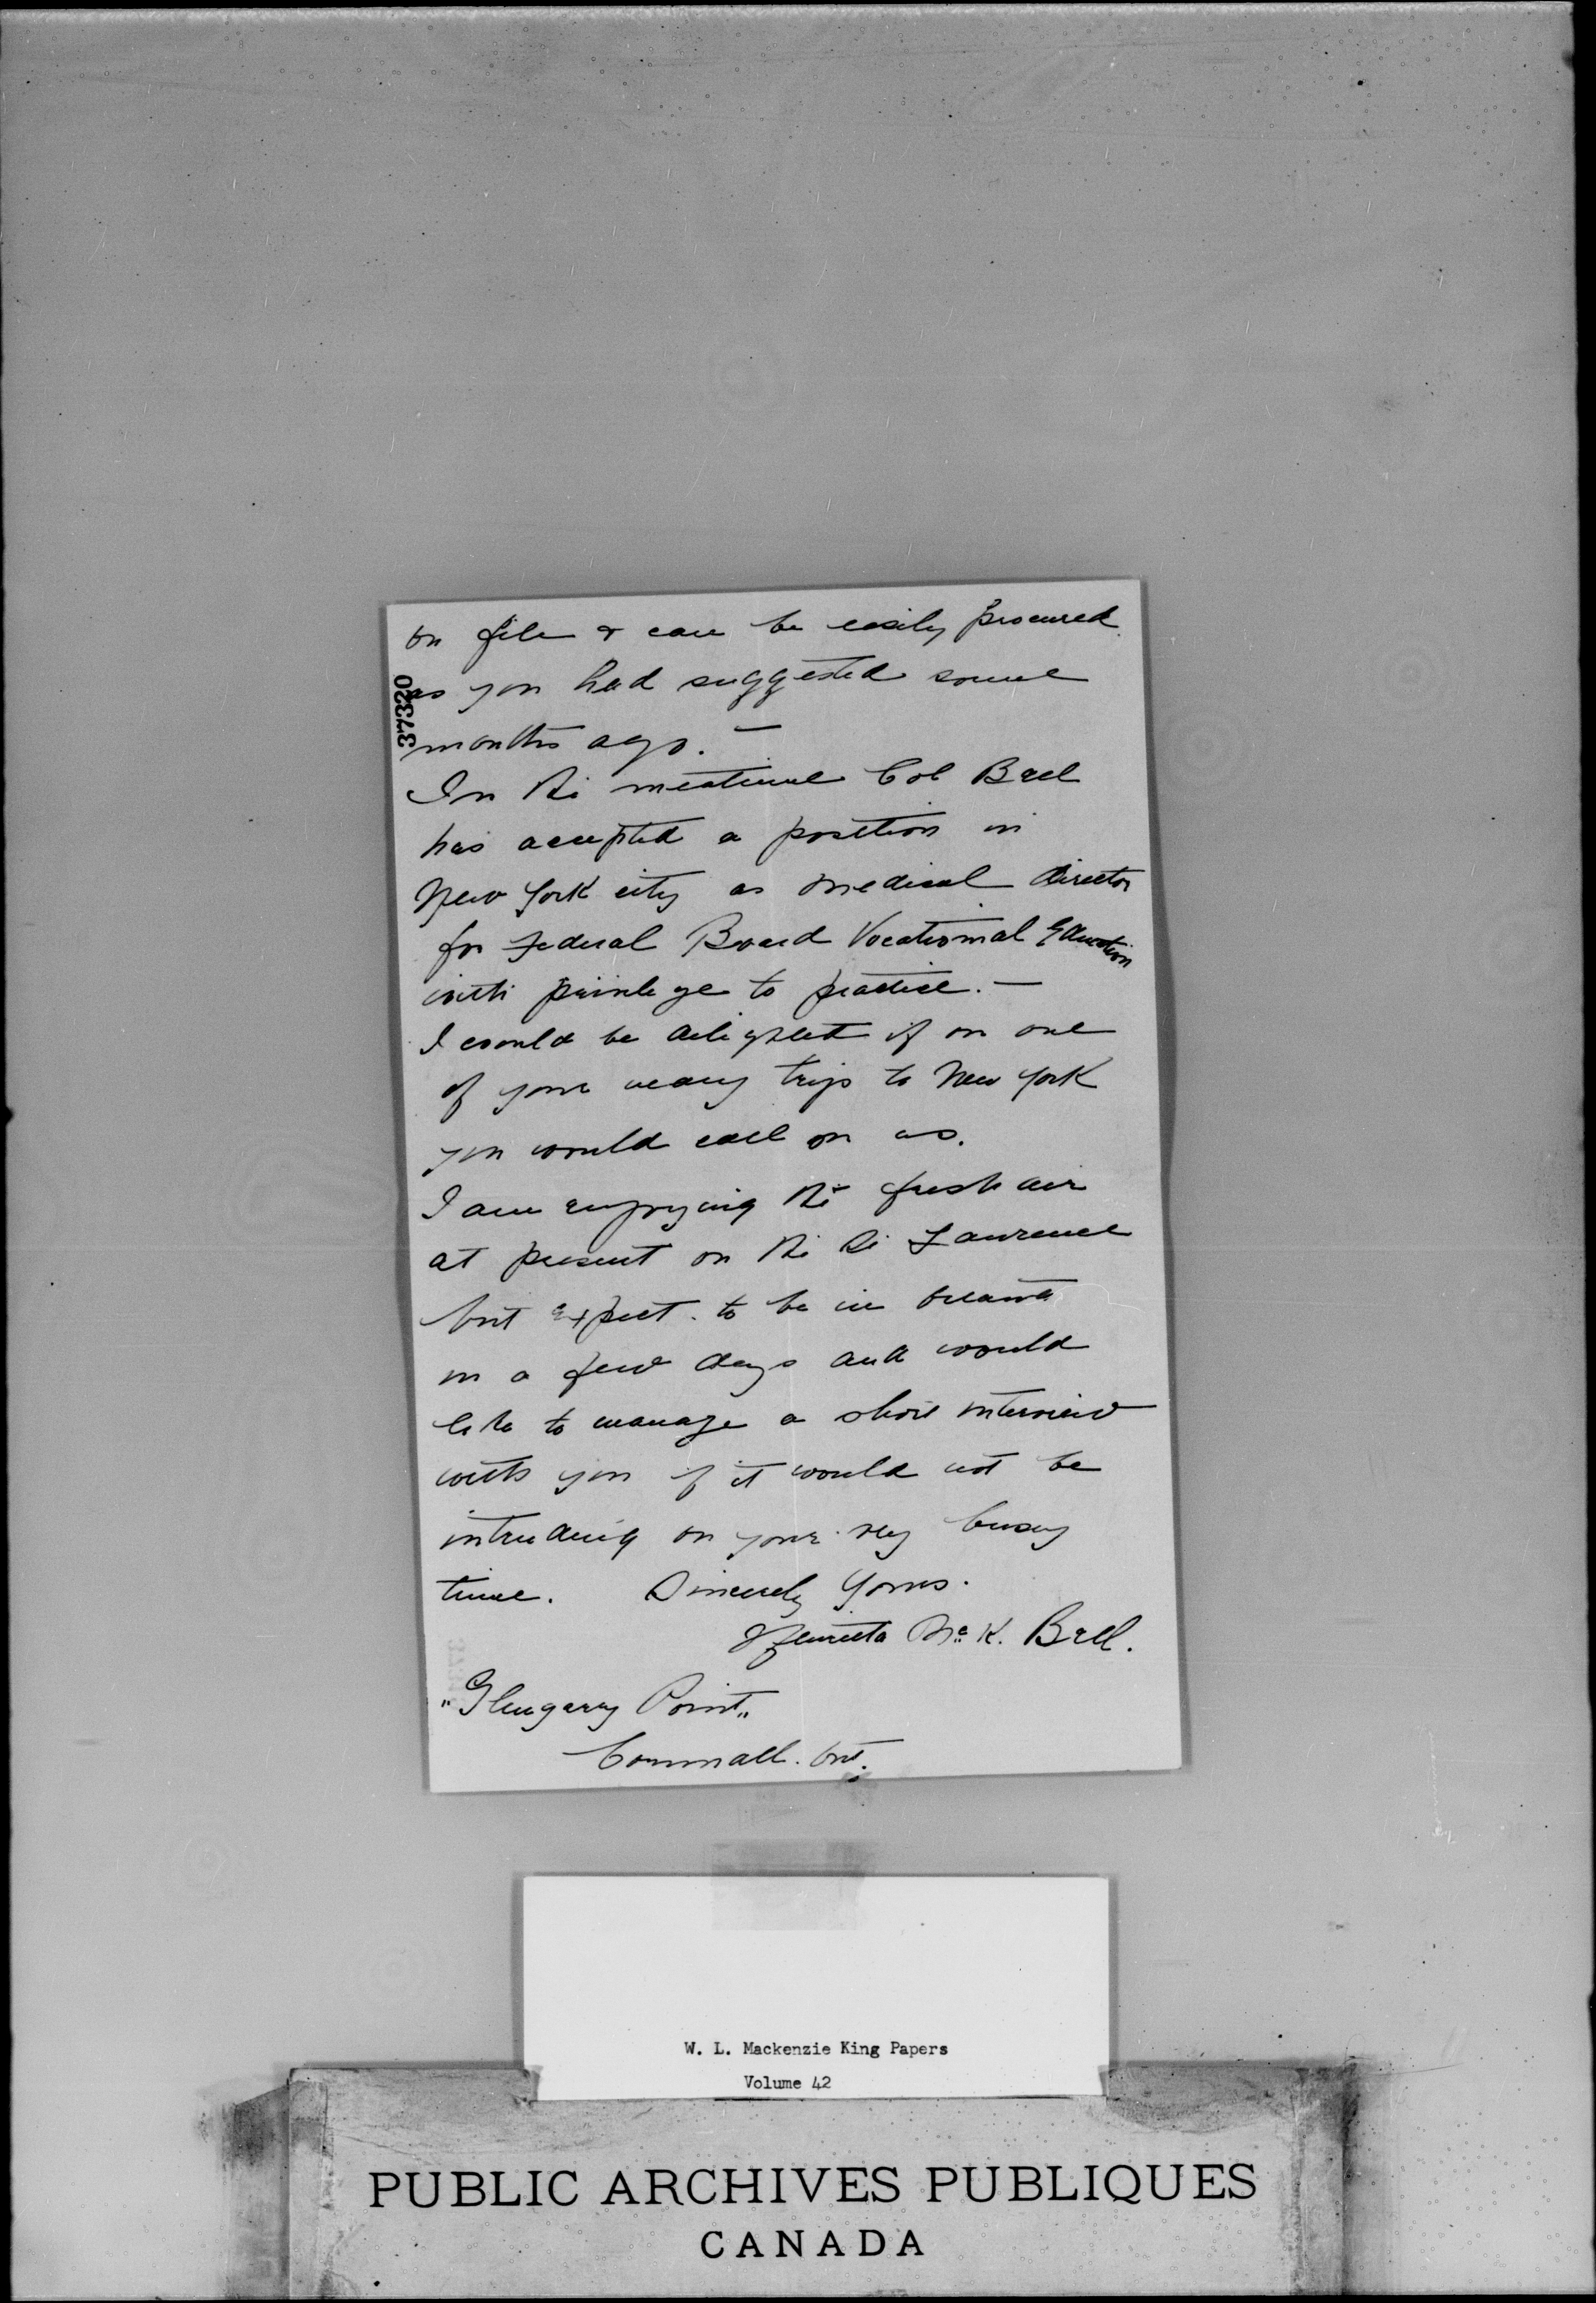 on file & can be easily procured
as you had suggested some
months ago. —
In the meatime Col Bell
has accepted a position in
New York city as medical director
for Federal Board Vocational Education
with privilege to practice. —
I would be delighted if on one
of your many trips to New York
you would call on us.
I am enjoying the fresh air
at present on the St Lawrence
but expect. to be in Ottawa
in a few days and would
like to manage a short interview
with you if it would not be
intruding on your very busy
time. Sincerely Yours.
Henrietta Mc K. Bell.
"Glengarry Point"
Cornwall. Ont.
37320
W. L. Mackenzie King Papers
Volume 42
PUBLIC ARCHIVES PUBLIQUES
CANADA